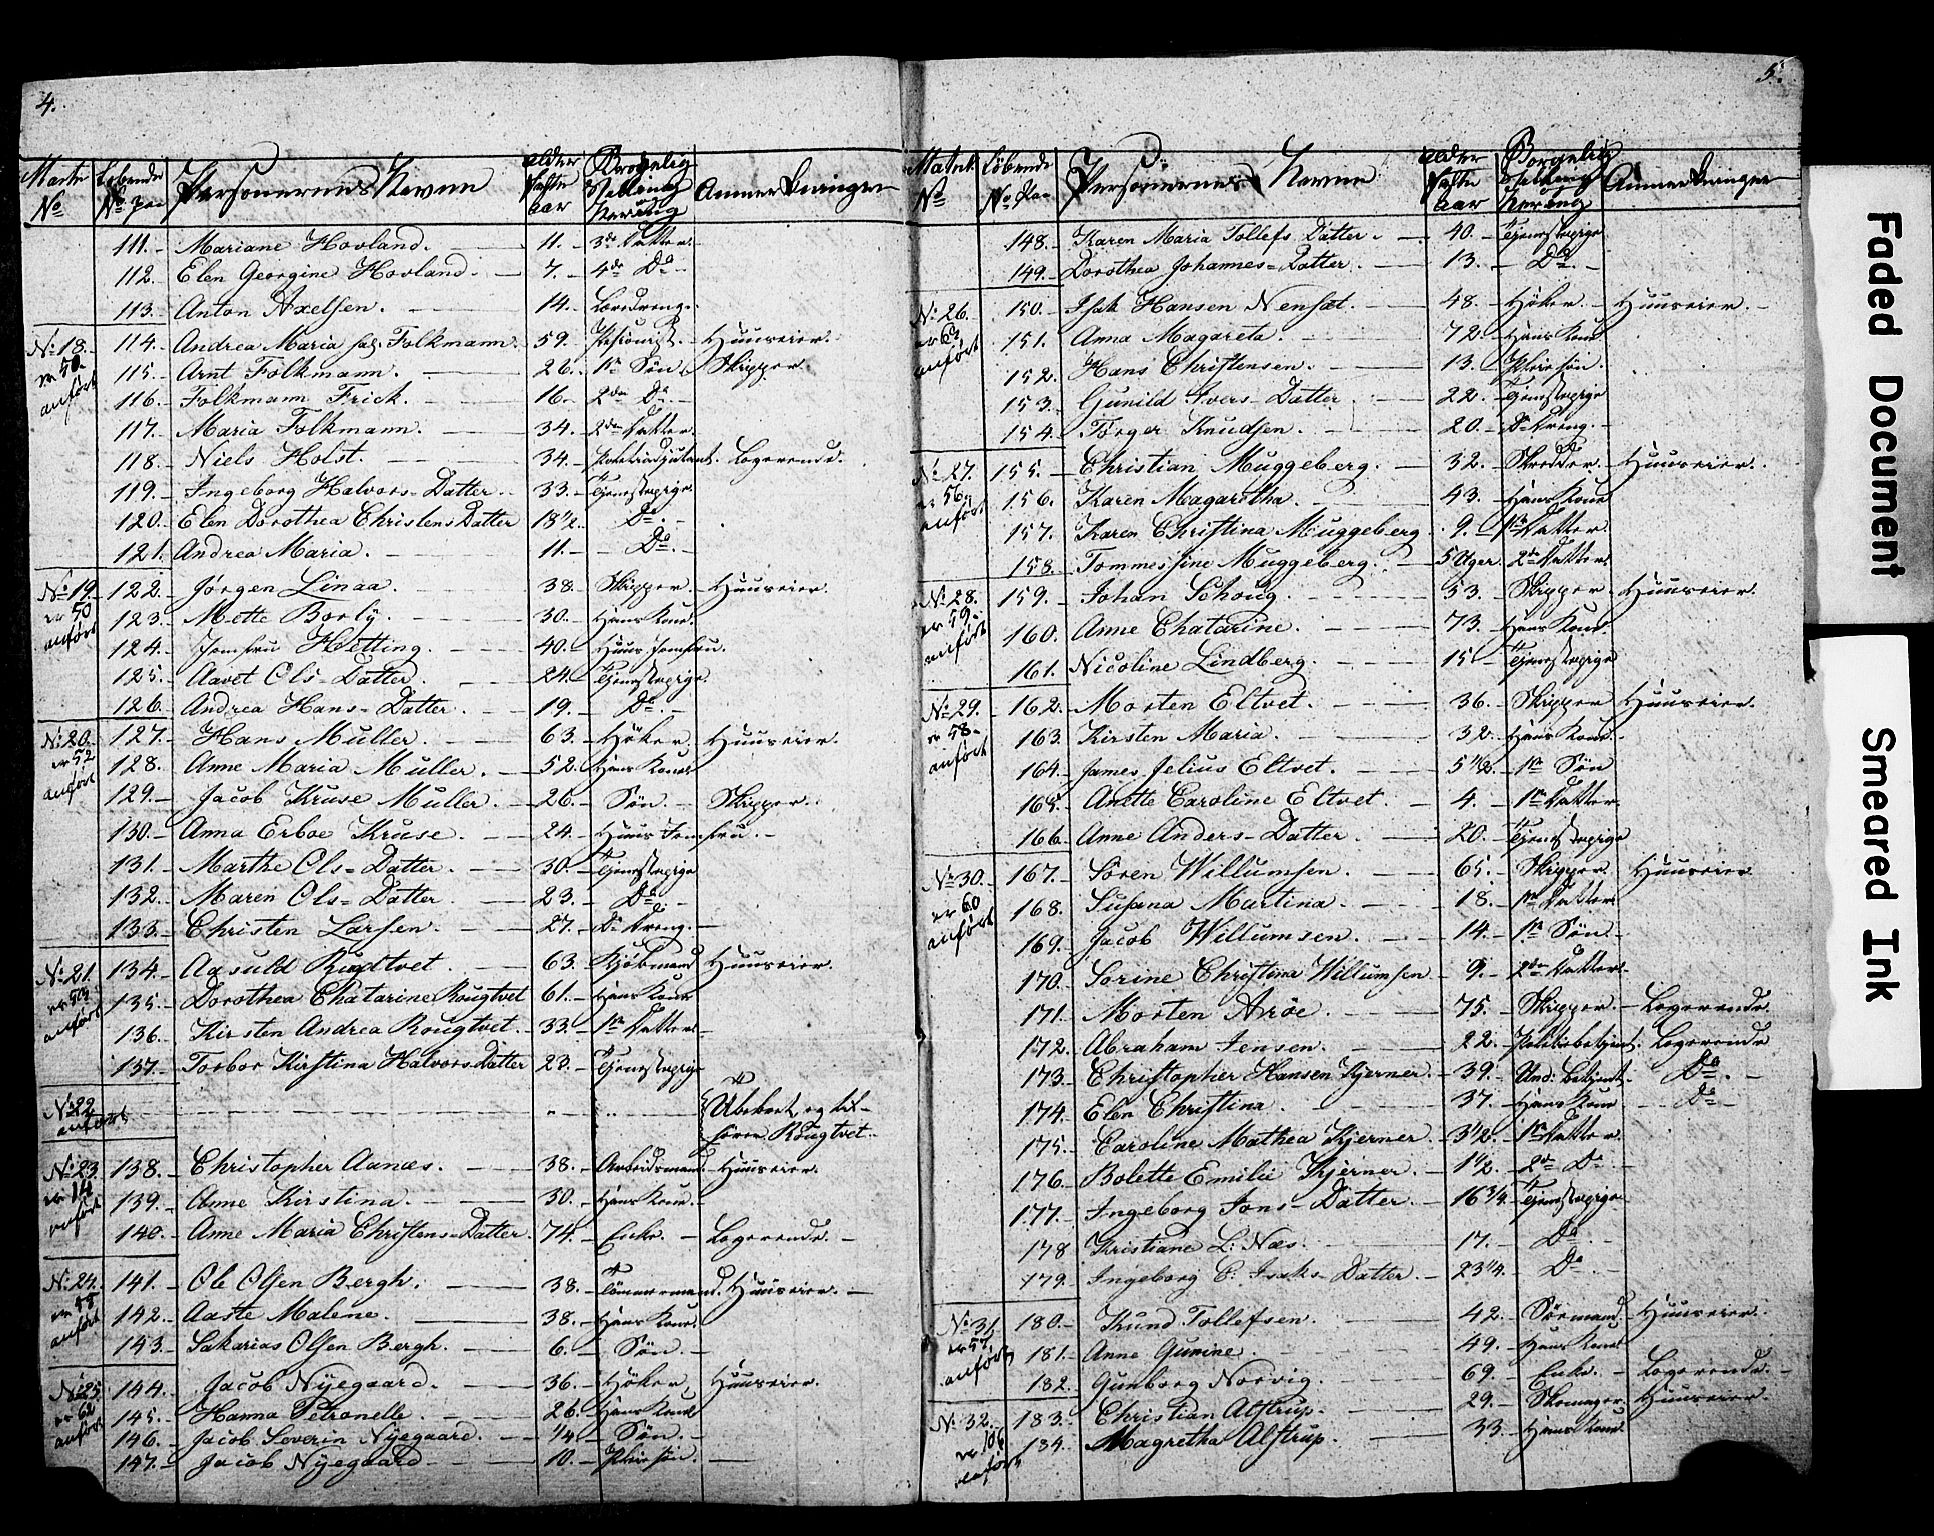 4.
Personernes Navne
111. Mariane Hovland. 11. 3de Datter
112. Elen Georgine Hovland. 7. 4de Do
113. Anton Axelsen. 14. Læredreng.
No 18. 114. Andrea Maria sal. Folkmann. 59. Huuseier.
er 50. anført 115. Arnt Folkmann. 26. 1te Søn Skipper.
116. Folkmann Frick. 16. 2den Do
117. Maria Folkmann. 34. 2den Datter
118. Niels Holst. 34. Logerende.
119. Ingeborg Halvors-Datter. 33. Tjenestepige
120. Elen Dorothea Christens Datter 18½. Do
121. Andrea Maria. 11. Do
No 19. 122. Jørgen Linaa. 38. Skipper. Huuseier.
er 50 anført 123. Mette Borly. 30. Hans Kone.
124. Jomfru Hetting. 40. Huus Jomfru.
125. Aavet Ols-Datter. 24. Tjenestepige.
126. Andrea Hans-Datter. 19. Do
No 20. 127. Hans Muller. 63. Høker. Huuseier.
er 52 anført 128. Anne Maria Muller. 52. Hans Kone
129. Jacob Kruse Muller. 26. Søn. Skipper.
130. Anna Erboe Kruse. 24. Huus Jomfru.
131. Marthe Ols-Datter. 30. Tjenestepige
132. Maren Ols-Datter. 23. Do
133. Christen Larsen. 27. Do Dreng.
No 21. 134. Aasuld Rugtvet. 63. Kjøbmand Huuseier.
anført 135. Dorothea Chatarine Rougtvet 61. Hans Kone
136. Kirsten Andrea Rougtvet. 33. 1te Datter
137. Torbor Kirstina Halvorsdatter 23. Tjenestepige
No 22 anført Ubeboet og til-
hører Rougtvet.
No 23. 138. Christopher Aanæs. 38. Arbeidsmand. Huuseier.
er 14 anført 139. Anne Kirstina. 30. Hans Kone.
140. Anne Maria Christens-Datter. 74. Enke. Logerende.
No 24. 141. Ole Olsen Bergh. 38. Tømmermand. Huuseier.
anført 142. Aaste Malene. 38. Hans Kone.
143. Sakarias Olsen Bergh. 6. Søn.
No 25 144. Jacob Nyegaard. 36. Høker Huuseier.
er 62 anført 145. Hanna Petronelle. 26. Hans Kone
146. Jacob Severin Nyegaard. ¼ Søn.
147. Jacob Nyegaard 10. Pleiesøn.
5.
Personernes Navne
148. Karen Maria Tollefs Datter. 40. Tjenestepige
149. Dorothea Johannes-Datter. 13. Do
No 26. 150. Isak Hansen Nenset. 48. Høker. Huuseier.
er 63 anført 151. Anna Magareta. 72. Hans Kone
152. Hans Christensen. 13. Pleiesøn.
153. Gunild Ivers-Datter. 22. Tjenestepige
154. Torger Knudsen. 20. Do Dreng.
No 27. 155. Christian Muggeberg. 32. Skredder. Huuseier.
er 56. anført 156. Karen Magaretha. 43. Hans Kone
157. Karen Christina Muggeberg. 9. 1te Datter.
158. Tommesine Muggeberg. 5 Uger 2de Datter.
No 28. 159. Johan Schoug. 53. Skipper Huuseier.
er 59. anført 160. Anne Chatarine. 73. Hans Kone.
161. Nicoline Lindberg. 15 Tjenestepige
No 29. 162. Morten Eltvet. 36. Skipper Huuseier.
er 58. anført 163. Kirsten Maria. 32. Hans Kone.
164. James Jelius Eltvet. 5½. 1te Søn
165. Anette Caroline Eltvet. 4. 1te Datter
166. Anne Anders-Datter. 20. Tjenestepige
No 30. 167. Søren Willumsen. 65. Skipper. Huuseier
er 60 anført 168. Susana Martina. 18. 1te Datter
169. Jacob Willumsen. 14. 1te Søn
170. Sorine Christina Willumsen 9. 2den Datter
171. Morten Arøe. 75. Skipper. Logerende.
172. Abraham Jensen. 22. Politiebetjent. Logerende
173. Christopher Hansen Kjerner. 39. Und: Betjent. Do
174. Elen Christina. 37. Hans Kone Do
175. Caroline Mathea Kjerner. 3½. 1te Datter.
176. Bolette Emilie Kjerner. 1½. 2de Do
177. Ingeborg Jons-Datter. 16¾. Tjenestepige
178 Kristiane L: Næs. 17. Do
179. Ingeborg C: Isaks-Datter. 23¼. Do
No 31 180. Knud Tollefsen. 42. Sørmand. Huuseier.
er 57 anført 181. Anne Gunine. 49. Hans Kone
182. Gunborg Norvig. 69. Enke. Logerende.
No 32. 183. Christian Alstrup. 29. Skomager. Huuseier.
er 106 anført 184. Magretha Alstrup. 33. Hans Kone
Faded Document
Smeared Ink